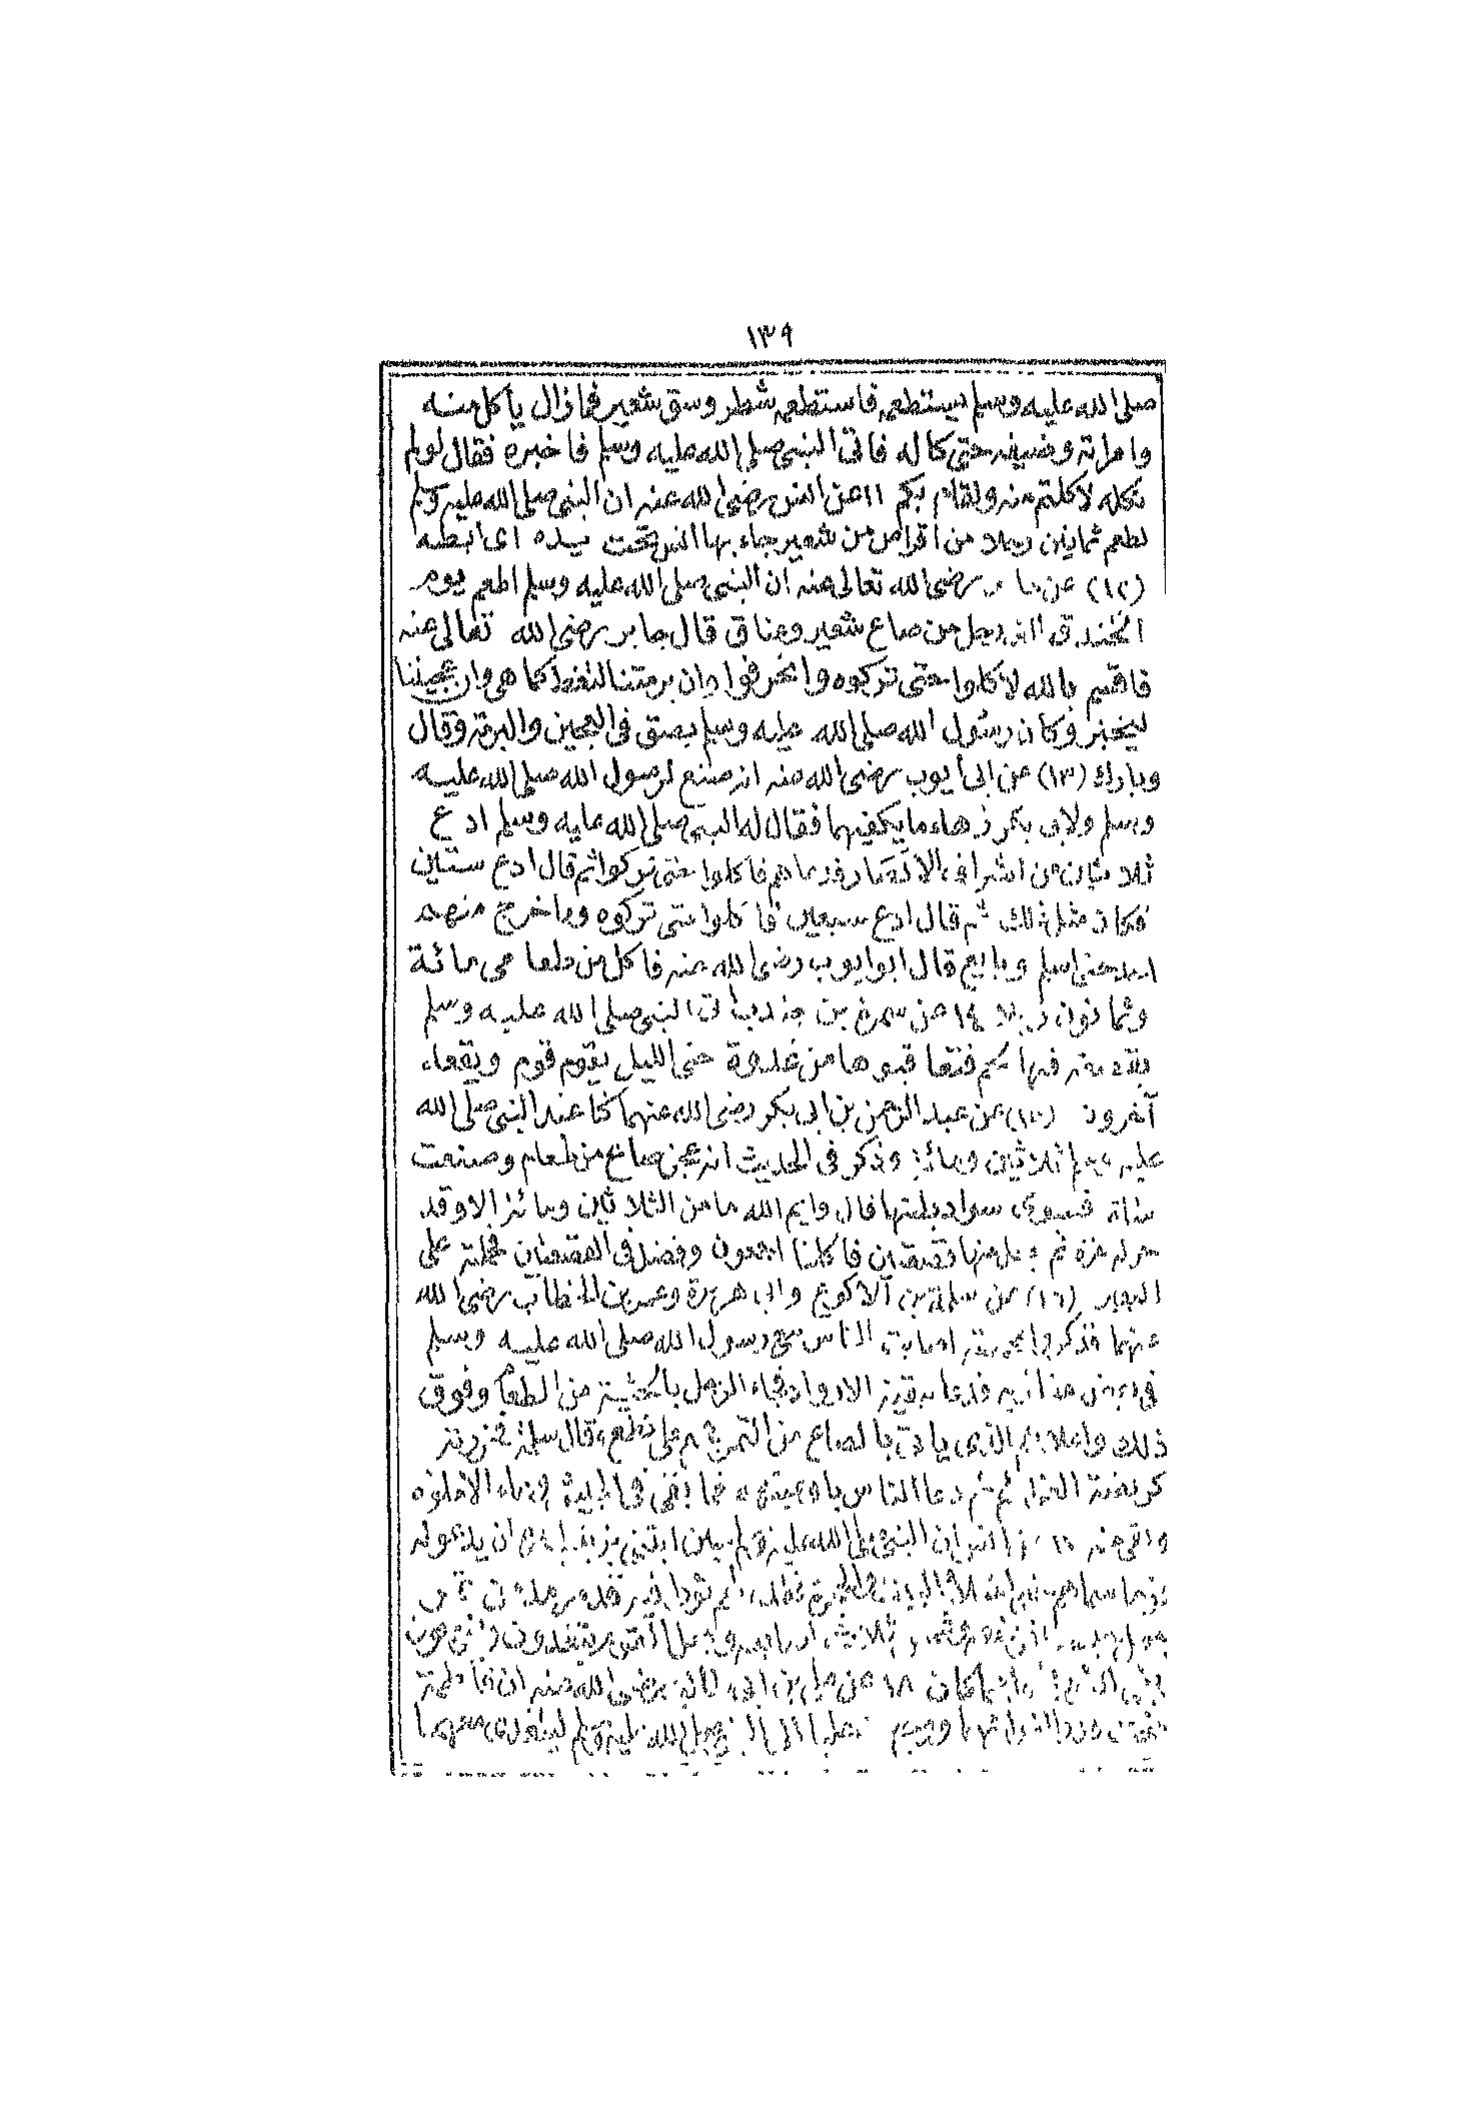 ١٣٩
صلى الله عليه وسلم يستطعمه فاستطعمه شطر وسق شعير فما زال يأكل منه
وامراته وضيفه حتى كاله فاتى النبى صلى الله عليه وسلم فاخبره فقال لولم
تكله لاكلتم منه ولقام بكم ١١ عن انس رضى الله عنه ان النبى صلى الله عليه وسلم
اطعم ثمانين رجلا من اقراص من شعير جاء بها انس تحت يده اى ابطه
(١٢) عن جابر رضى الله تعالى عنه ان النبى صلى الله عليه وسلم اطعم يوم
الخندق الف رجل من صاع شعير وعناق قال جابر رضى الله تعالى عنه
فاقسم بالله لاكلوا حتى تركوه وانحرفوا وان برمتنا لتغط كما هى وان عجيننا
ليخبز وكان رسول الله صلى الله عليه وسلم بصق فى العجين والبرمة وقال
وبارك (١٣) عن ابى أيوب رضى الله عنه انه صنع لرسول الله صلى الله عليه
وسلم ولابى بكر زهاء ما يكفيهما فقال له النبى صلى الله عليه وسلم ادع
ثلاثين من اشراف الانصار فدعاهم فاكلوا حتى تركوا ثم قال ادع ستين
فكان مثل ذلك ثم قال ادع سبعين فاكلوا حتى تركوه وما خرج منهم
احد حتى اسلم وبايع قال ابو ايوب رضى الله عنه فاكل من طعامى مائة
وثمانون رجلا ١٤ عن سمرة بن جندب اتى النبى صلى الله عليه وسلم
بقصعة فيها لحم فتعاقبوها من غدوة حتى الليل يقوم قوم ويقعد
آخرون (١٥) عن عبد الرحمن بن ابى بكر رضى الله عنهما كنا عند النبى صلى الله
عليه وسلم ثلاثين ومائة وذكر فى الحديث انه عجن صاع من طعام وصنعت
شاة فشوى سواد بطنها قال وايم الله ما من الثلاثين ومائة الا وقد
حز له حزة ثم جعل منها قصعتين فاكلنا اجمعون وفضل فى القصعتين فحملته على
البعير (١٦) عن سلمة بن الاكوع وابى هريرة وعمر بن الخطاب رضى الله
عنهما فذكروا مخمصة اصابت الناس مع رسول الله صلى الله عليه وسلم
فى بعض مغازيه فدعا ببقية الازواد فجاء الرجل بالحثية من الطعام وفوق
ذلك واعلاهم الذى ياتى بالصاع من التمر فجمع على نطع قال سلمة فحزرته
كربضة العنز ثم دعا الناس باوعيتهم فما بقى فى الجيش وعاء الا ملؤه
وبقى منه ان النبى صلى الله عليه وسلم حين ابتنى بزينب ان يدعو له
١٨ عن على بن ابى طالب رضى الله عنه ان فاطمة